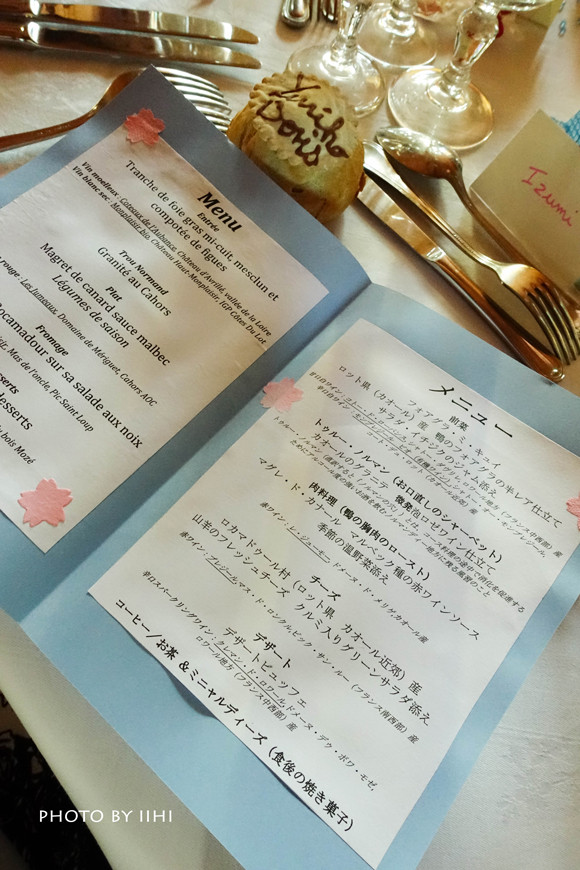 Yuiho
Doris
Izumi
Menu
Entrée
Tranche de foie gras mi-cuit, mesclun et
compotée de figues
Vin moelleux : Coteaux de l'Aubance, Château d'Avrillé, vallée de la Loire
Vin blanc sec : Monplaisir bio, Château Haut-Monplaisir, IGP Côtes Du Lot
Trou Normand
Granité au Cahors
Plat
Magret de canard sauce malbec
Légumes de saison
rouge : Les Jumeaux, Domaine de Mériguet, Cahors AOC
Fromage
ocamadour sur sa salade aux noix
Mas de l'oncle, Pic Saint Loup
sserts
desserts
du Bois Mozé
メニュー
前菜
フォアグラ・ミ・キュイ
ロット県（カオール）産 鴨のフォアグラの半レア仕立て
サラダ・イチジクのジャム添え
トゥルー・ノルマン（お口直しのシャーベット）
カオールのグラニテ 微発泡ロゼワイン仕立て
肉料理（鴨の胸肉のロースト）
マグレ・ド・カナール マルベック種の赤ワインソース
季節の温野菜添え
チーズ
ロカマドゥール村（ロット県 カオール近郊）産
山羊のフレッシュチーズ クルミ入りグリーンサラダ添え
デザート
デザートビュッフェ
ロワール地方（フランス中西部）産
コーヒー／お茶 ＆ミニャルディーズ（食後の焼き菓子）
PHOTO BY IIHI